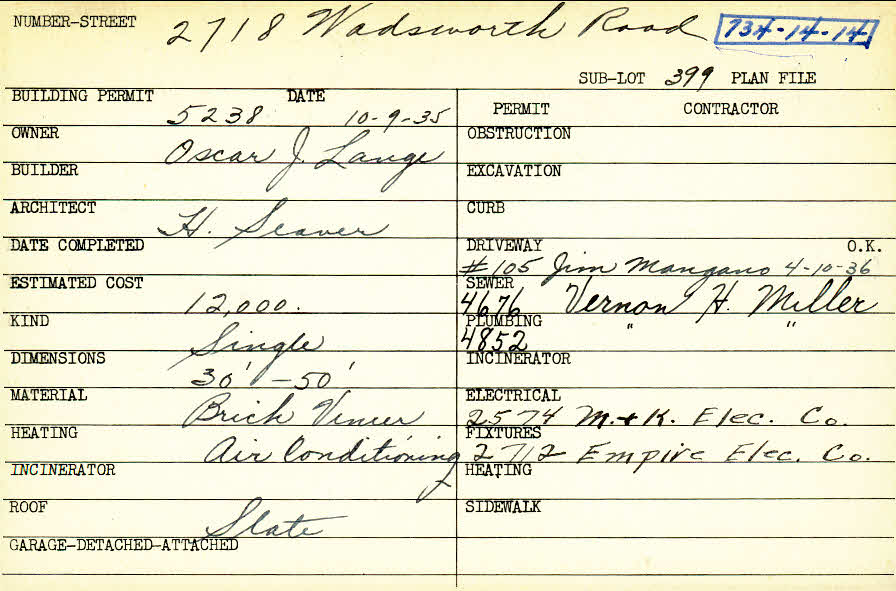 NUMBER-STREET 2718 Wadsworth Road 734-14-14
SUB-LOT 399 PLAN FILE
BUILDING PERMIT 5238 DATE 10-9-35
OWNER Oscar J. Lange
BUILDER
ARCHITECT H. Seaver
DATE COMPLETED
ESTIMATED COST 12,000.
KIND Single
DIMENSIONS 30' - 50'
MATERIAL Brick Veneer
HEATING Air Conditioning
INCINERATOR
ROOF Slate
GARAGE-DETACHED-ATTACHED
PERMIT CONTRACTOR
OBSTRUCTION
EXCAVATION
CURB
DRIVEWAY O.K.
#105 Jim Mangano 4-10-36
SEWER
4676 Vernon H. Miller
PLUMBING
4852 " "
INCINERATOR
ELECTRICAL
2574 M. + K. Elec. Co.
FIXTURES
2712 Empire Elec. Co.
HEATING
SIDEWALK